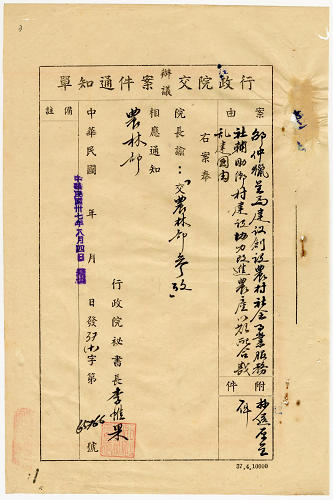 行政院交辦議案件通知單
案由
鄒仲㒒呈為建議創設農村社會事業服務
社輔助鄉村建設協力改進農產以期配合戡
亂建國由
附件
抄送原呈
件
右案奉
院長諭：「交農林部參攷」
相應通知
農林部
行政院祕書長李惟果
中華民國 年 月 日發 字第 號
中華民國卅七年八月四日
65766
備註
37.4.10000